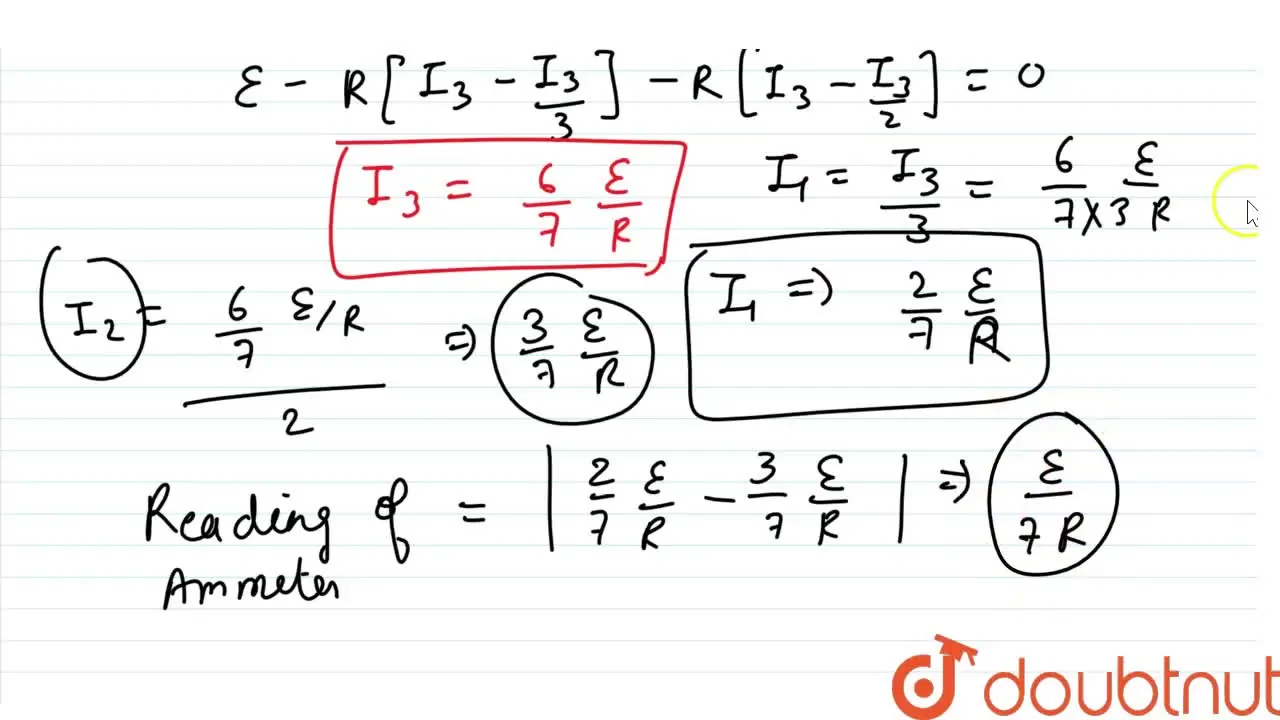 ε - R[I₃ - I₃/3] - R[I₃ - I₃/2] = 0
I₃ = 6/7 ε/R
I₁ = I₃/3 = 6/7×3 ε/R
I₁ ⇒ 2/7 ε/R
I₂ = 6/7 ε/R / 2 ⇒ 3/7 ε/R
Reading of Ammeter = | 2/7 ε/R - 3/7 ε/R | ⇒ ε/7R
doubtnut